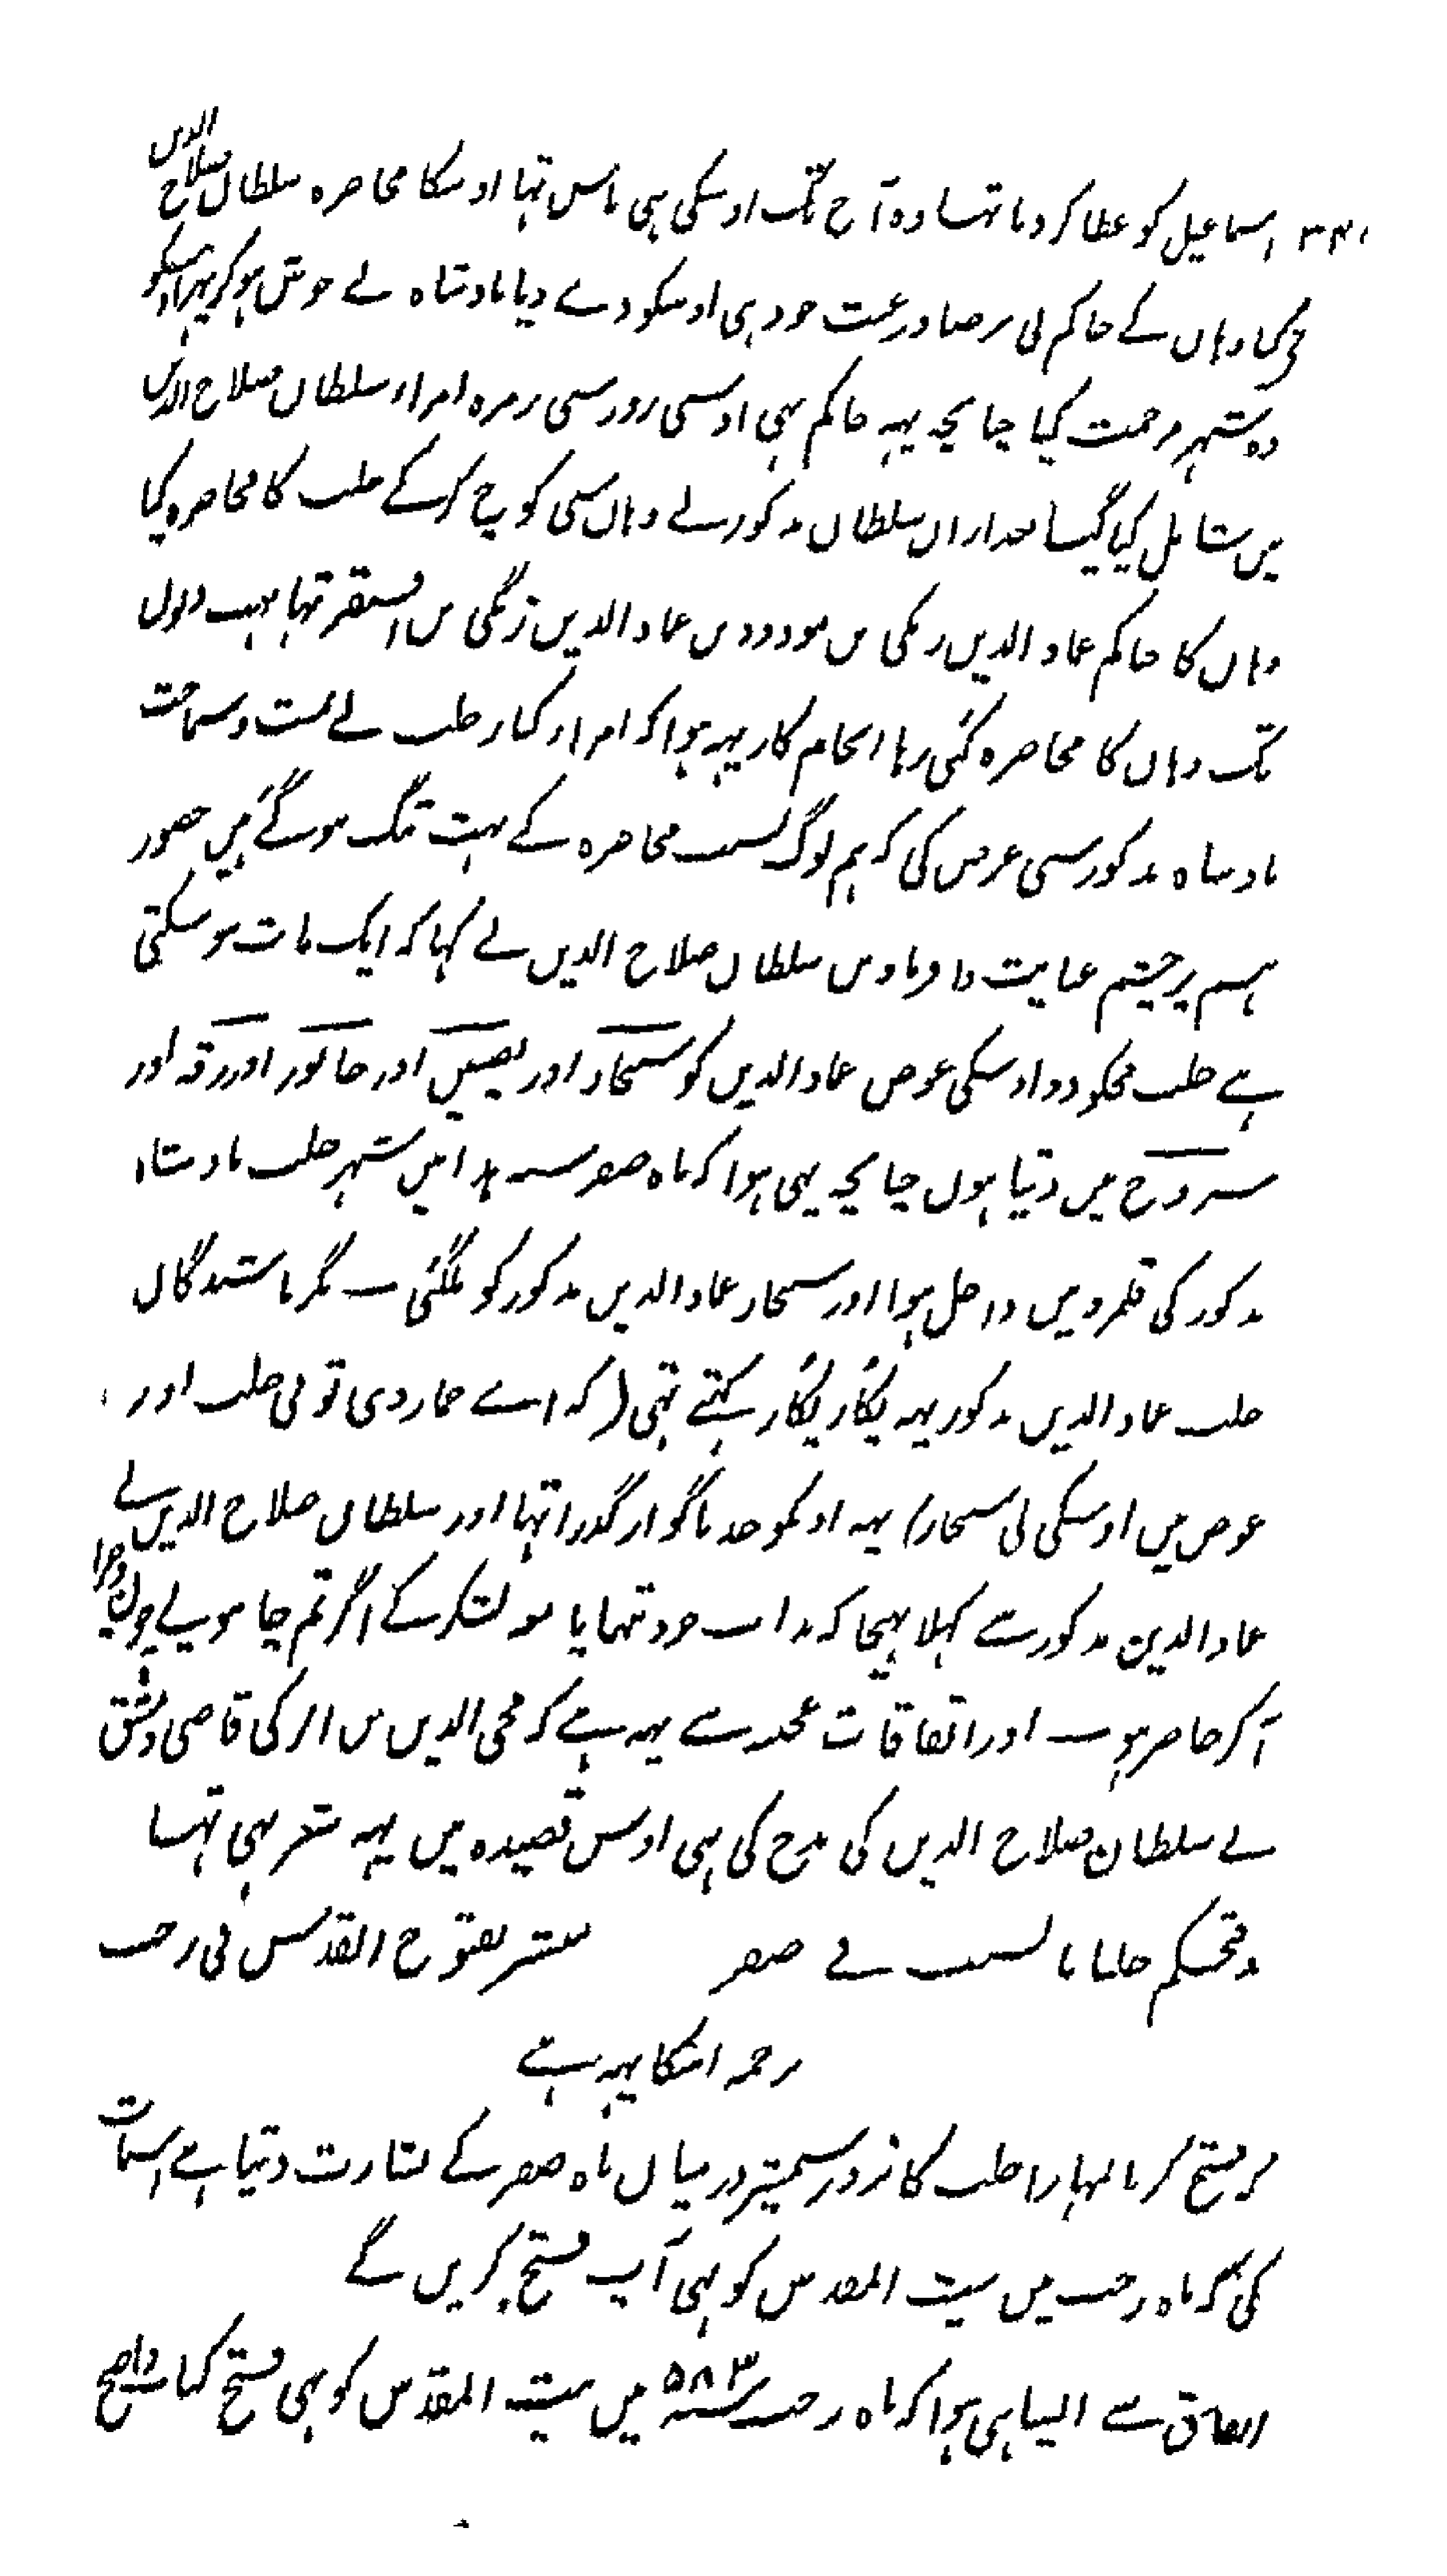 ۳۴۰ اسماعیل کو عطا کر دیا تھا وہ آج تک اوسکی ہی پاس تہا اوسکا محاصرہ سلطان صلاح الدین
نی کیا وہاں کے حاکم نی برضا و رغبت خود ہی اوسکو دے دیا بادشاہ نے خوش ہو کر پہر اوسکو
وہ شہر مرحمت کیا چنانچہ یہہ حاکم بہی اوسی روز سی زمرہ امراء سلطان صلاح الدین
میں شامل کیا گیا بعد ازاں سلطان مذکور نے وہاں سی کوچ کر کے حلب کا محاصرہ کیا
وہاں کا حاکم عماد الدین زنگی بن مودود بن عماد الدین زنگی بن اقسنقر تہا بہت دنوں
تک وہاں کا محاصرہ کئی رہا انجام کار یہہ ہوا کہ امراء کبار حلب نے بمنت و سماجت
بادشاہ مذکور سی عرض کی کہ ہم لوگ بسبب محاصرہ کے بہت تنگ ہو گئے ہیں حضور
ہم پر چشم عنایت وا فرماویں سلطان صلاح الدین نے کہا کہ ایک بات ہو سکتی
ہے حلب مجکو دو اوسکی عوض عماد الدین کو سنجار اور نصیبین اور خابور اور رقہ اور
سروج میں دیتا ہوں چنانچہ یہی ہوا کہ ماہ صفر سنہ ہذا میں شہر حلب بادشاہ
مذکور کی قلمرو میں داخل ہوا اور سنجار عماد الدین مذکور کو ملگئی — مگر باشندگان
حلب عماد الدین مذکور یہہ پکار پکار کہتے تہی (کہ اے حمار دی تو نی حلب اور
عوض میں اوسکی لی سنجار) یہہ اونکو حد ناگوار گذرا تہا اور سلطان صلاح الدین نے
عماد الدین مذکور سے کہلا بہیجا کہ بذات خود تنہا یا معہ لشکر کے اگر تم چاہو بے چون و چرا
آ کر حاضر ہو — اور اتفاقات عجیبہ سے یہہ ہے کہ محی الدین بن الزکی قاضی دمشق
نے سلطان صلاح الدین کی مدح کی ہی اوس قصیدہ میں یہہ شعر بہی تہا
وفتحکم حلبا بالسیف فی صفر مبشر بفتوح القدس فی رجب
ترجمہ اسکا یہہ ہے
کہ فتح کرنا تمہارا حلب کا بزور شمشیر درمیان ماہ صفر کے بشارت دیتا ہے اسبات
کی کہ ماہ رجب میں بیت المقدس کو بہی آپ فتح کریں گے
اتفاق سے ایسا ہی ہوا کہ ماہ رجب سنہ ۵۸۳ میں بیت المقدس کو بہی فتح کیا واضح